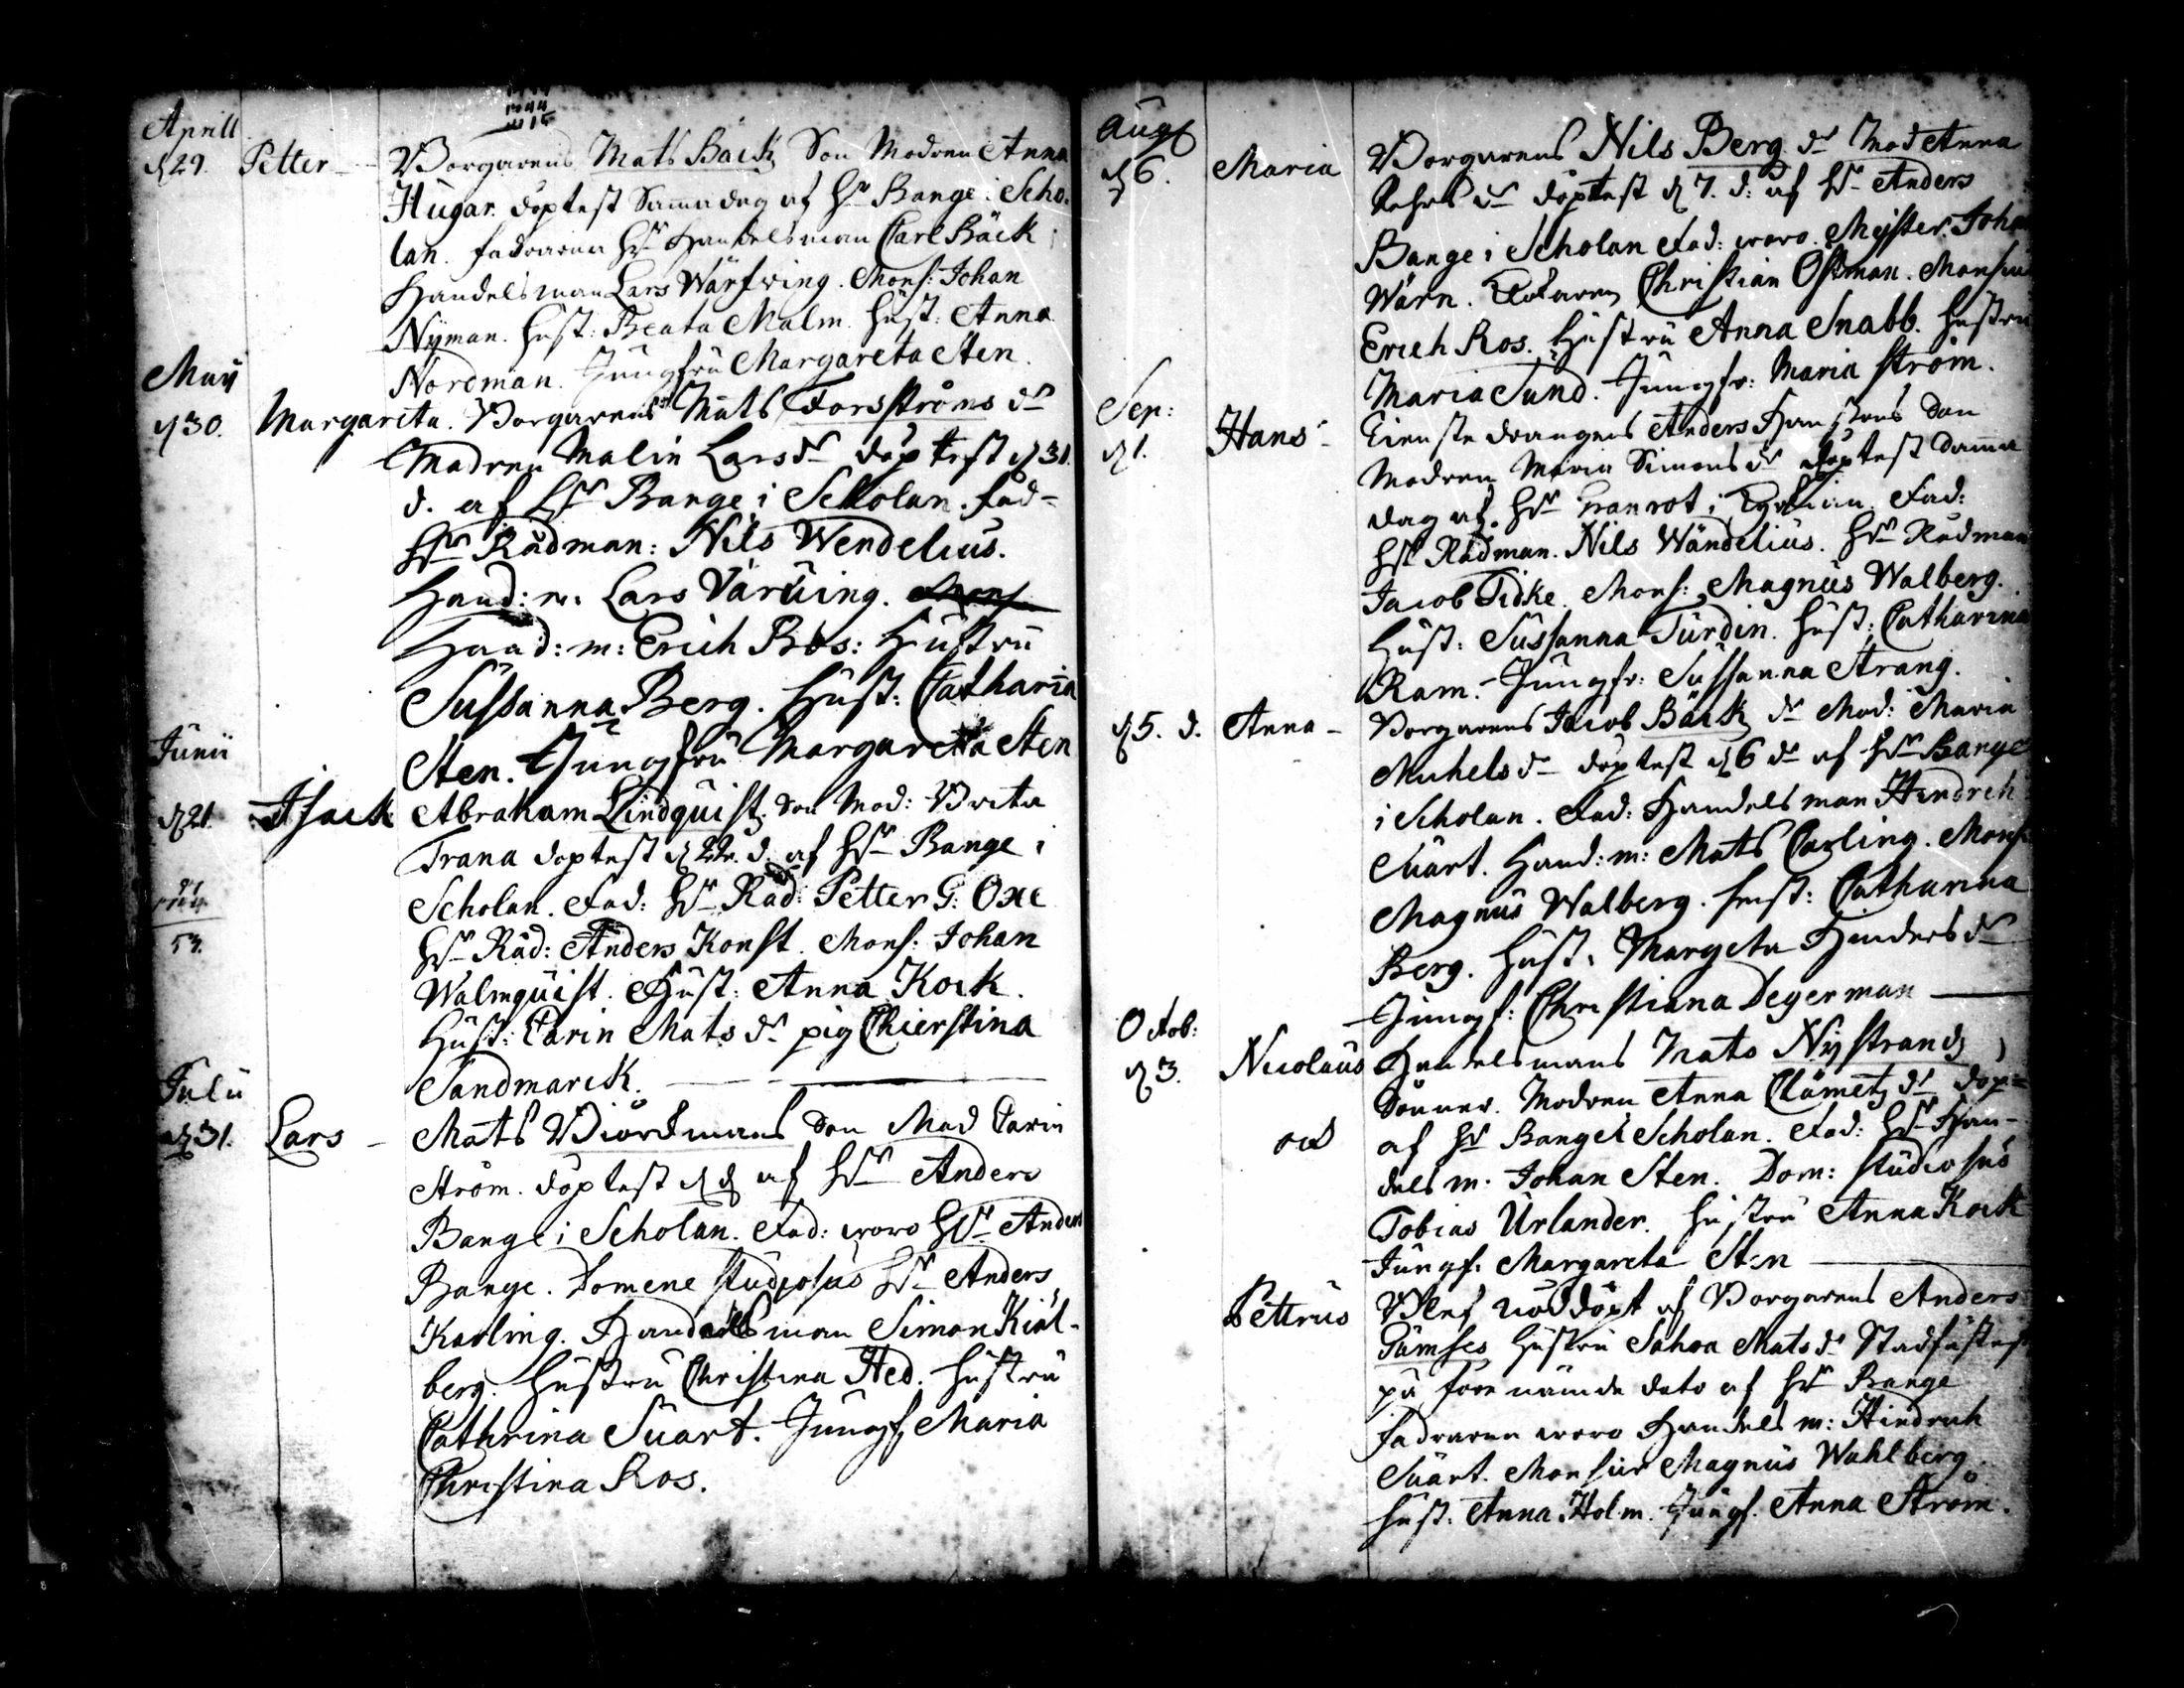 Aprill
d 29. Petter – Borgarens Mats Bäck Son Modren Anna
Hugar. döptest Samma dag af Hr Bange i Scho-
lan. fadrarna Hr Handelsman Carl Bäck
Handelsman Lars Wärfwing. Mons: Johan
Nyman. Hust: Beata Malm. Hust: Anna
Nordman. Jungfru Margareta Sten.
Maij
d 30. Margareta. Borgarens Mats Forsströms dr
Modren Malin Larsdr döptest d 31.
d. af Hr Bange i Scholan. fad-
Hr Rådman: Nils Wendelius.
Hand: m: Lars Väruing. Mons
Hand: m: Erich Ros: Hustru
Sussanna Berg. Hust: Catharina
Sten. Jungfru Margareta Sten
Junii
d 21. Isack Abraham Lindquist. Son Mod: Brita
Trana döptest d 22. d. af Hr Bange i
Scholan. Fad: Hr Råd: Petter G: Oxe
53.
Hr Råd: Anders Konst. Mons: Johan
Walmquist. Hust: Anna Kock.
Hust: Carin Mats dr pig Chierstina
Sandmarck.
Julii
d 31. Lars – Mats Biörkmans Son Mod Carin
Ström. döptest d d af Hr Anders
Bange i Scholan. Fad: woro Hr Anders
Bange. Domene studiosus Hr Anders
Karling. Handelsman Simon Kiäl-
berg. Hustru Christina Hed. Hustru
Cathrina Suart. Jungf Maria
Christina Ros.
Augs
d 6. Maria Borgarens Nils Berg dr Mod Anna
dr döptest d 7. d: af Hr Anders
Bange i Scholan Fad: woro. Mester Joha
Wärn. Christian Östman. Monsiu
Erich Ros. Hustru Anna Snabb. Hustru
Maria Sund. Jungfr: Maria Ström.
Sep:
d 1. Hans – Tienstedrangens Anders Hanssons Son
Modren Maria Simonsdr döptest Samma
dag af Hr Granrot i Kyrkian. Fad:
Hr Rådman. Nils Wändelius. Hr Rådman
Jacob Tidke. Mons: Magnus Walberg.
Hust: Sussanna Turdin. Hust: Catharina
Ram. Jungfr: Sussanna Strang.
d 5. d. Anna – Borgarens Jacob Bäck dr Mod: Maria
Michelsdr döptest d 6 dr af Hr Bange
i Scholan. Fad: Handelsman Hindrch
Suart. Hand: m: Mats Carling. Mons
Magnus Walberg. Hust: Catharina
Berg. Hust. Margeta Hindersdr
Jungf: Christiana Degerman
Octob:
d 3. Nicolaus Handelsmans Mats Nystrands
Sönner. Modren Anna Clämetz dr döp-
och af Hr Bange i Scholan. Fad: Hr Han-
dels m. Johan Sten. Dom: studiosus
Tobias Urlander. Hustru Anna Kock
Jungf. Margareta Sten
Pettrus Blef nöddöpt af Borgarens Anders
Gumses Hustru Sahra Matsdr Stadfästes
på förenämde dato af Hr Bange
fadrarna woro Handels m: Hindrich
Suart. Monsiur Magnus Wahlberg.
Hust. Anna Holm. Jungf. Anna Ström.